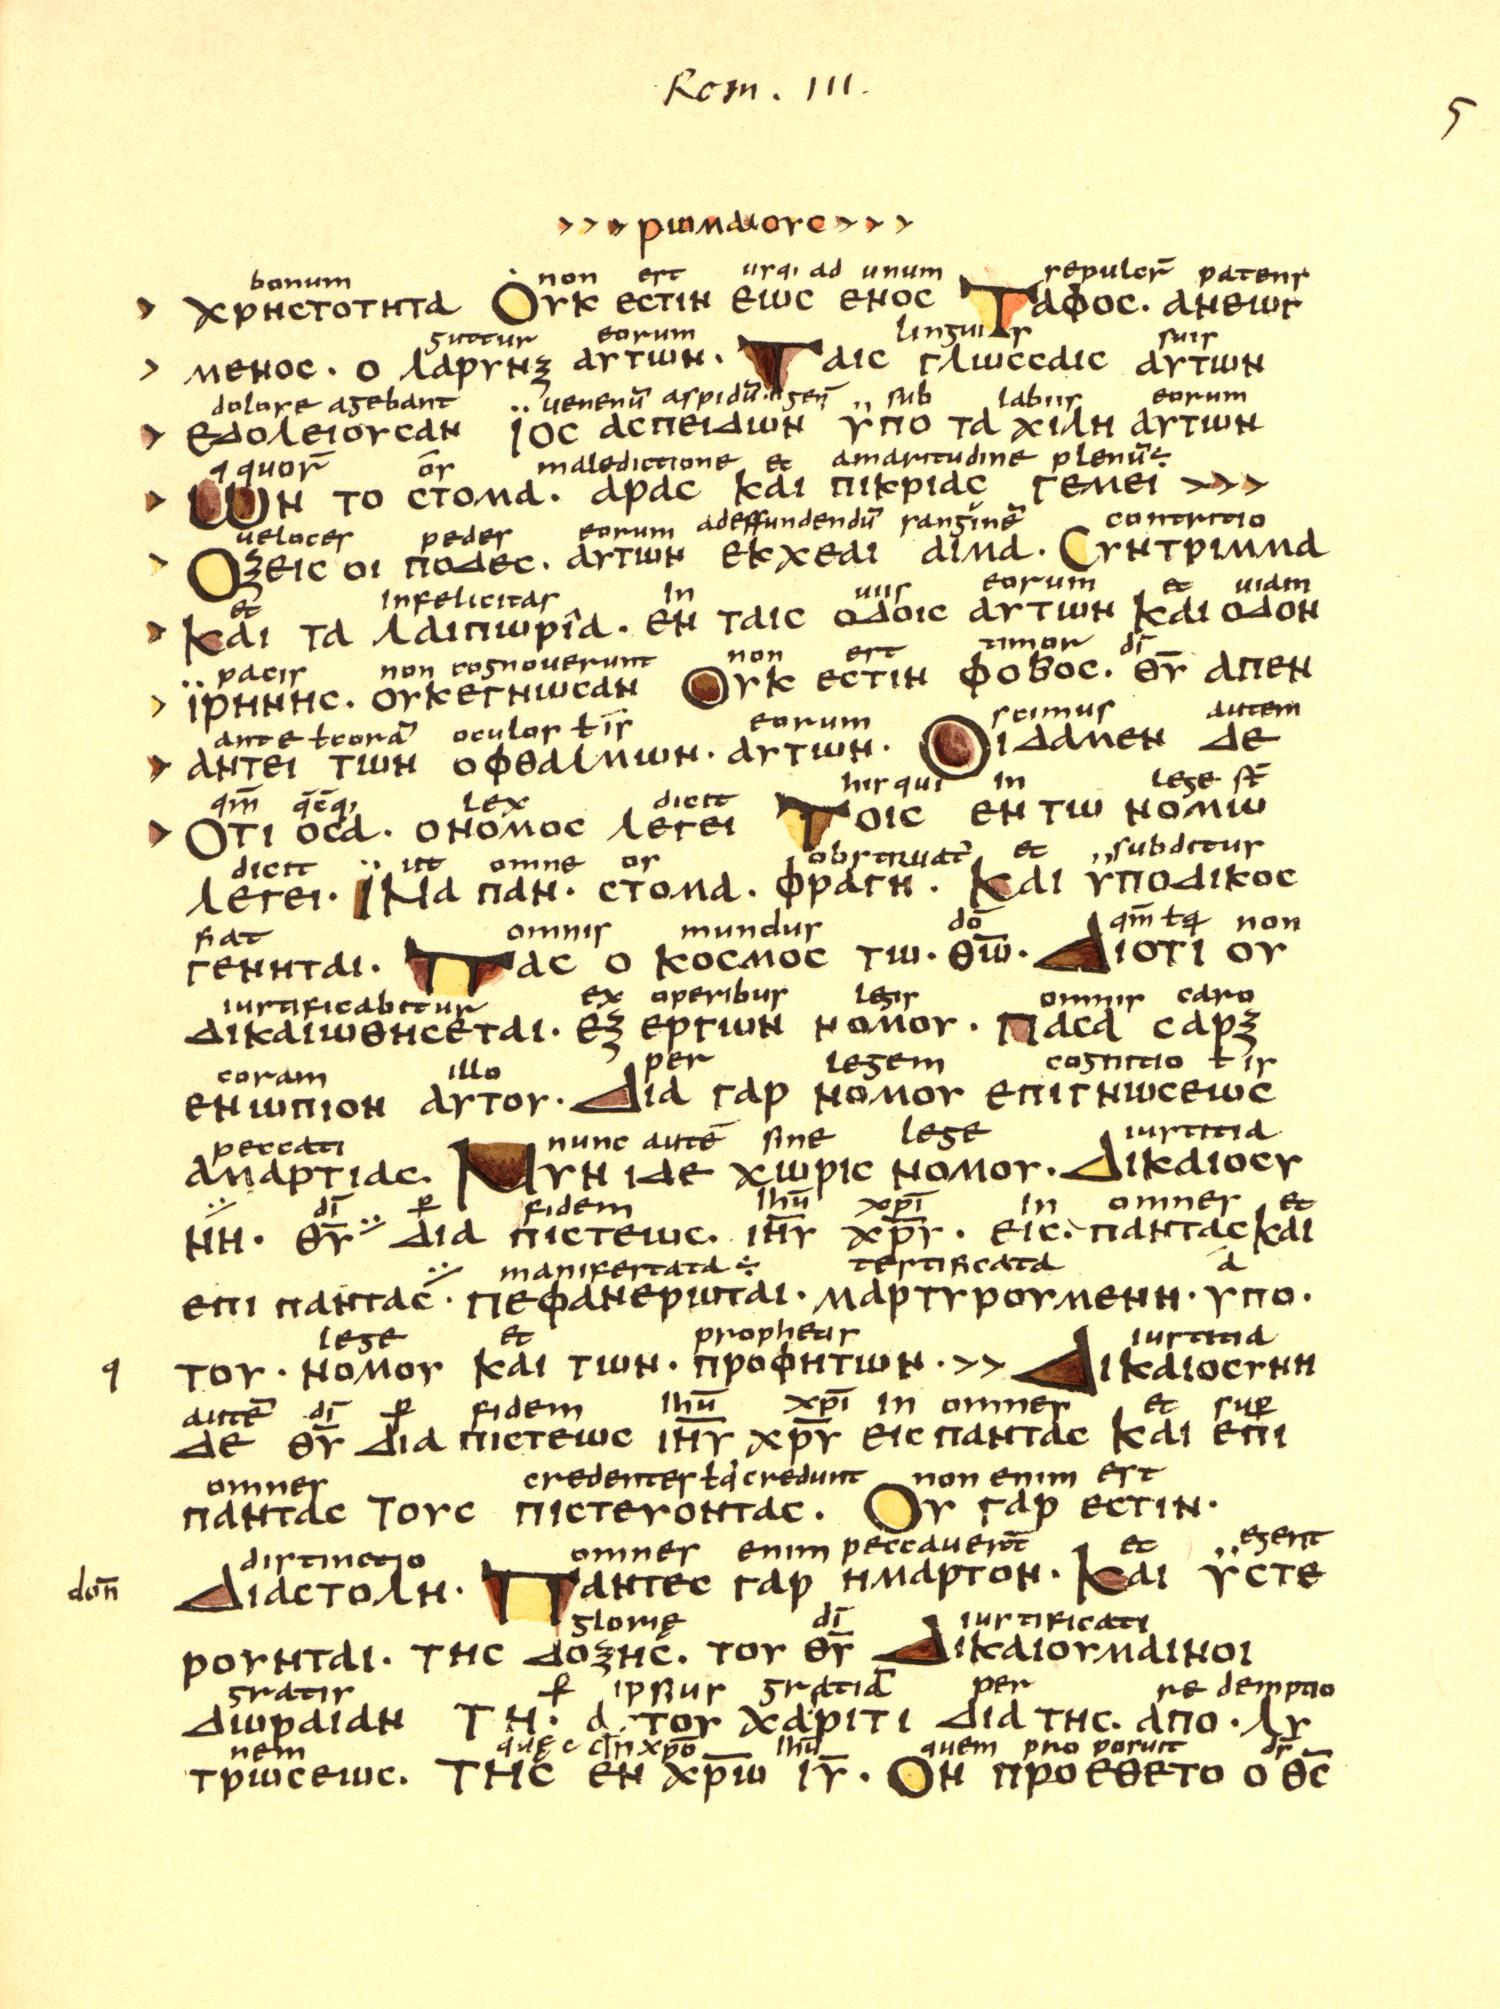 Rom. III.
5
> > > ρωμαιους > > >
bonum non est usq; ad unum sepulcr̄ patens
> χρηστοτητα Ουκ εστιν εως ενος Ταφος. ανεωγ
guttur eorum linguis suis
> μενος. ο λαρυνξ αυτων. Ταις γλωσσαις αυτων
dolose agebant uenenū aspidū sub labiis eorum
> εδολειουσαν ϊος ασπειδων ϋπο τα χιλη αυτων
quor̄ ōs maledictione et amaritudine plenū÷
> Ων το στομα. αρας και πικριας γεμει >>>
ueloces pedes eorum adeffundendū sanginē contritio
> Οξεις οι ποδες. αυτων εκχεαι αιμα. Cυντριμμα
et infelicitas in uiis eorum et uiam
> Και τα λαιπωρια. εν ταις οδοις αυτων και οδον
pacis non cognouerunt non est timor dī
> ϊρηνης. ουκεγνωσαν Ουκ εστιν φοβος. θ̅υ̅ απεν
ante ł corā oculos ł is eorum scimus autem
> αντει των οφθαλμων. αυτων. Οιδαμεν δε
qm̄ lex dicit his qui in lege st̄
> Οτι οσα. ονομος λεγει Τοις εν τω νομω
dicit ut omne os obstruat̄ et subditus
λεγει. ϊΝα παν. στομα. φραγη. Και ϋποδικος
fiat omnis mundus dō qm̄ ł q non
γενηται. Πας ο κοσμος τω. θ̅ω̅. Διοτι ου
iustificabitur ex operibus legis omnis caro
δικαιωθησεται. εξ εργων νομου. Πασα σαρξ
coram illo per legem cognitio ł is
ενωπιον αυτου. Δια γαρ νομου επιγνωσεως
peccati nunc autē sine lege iustitia
αμαρτιας. Νυν ιδε χωρις νομου. Δικαιοσυ
dī p̄ fidem ihū xpī in omnes et
νη. θ̅υ̅ δια πιστεως. ι̅η̅υ̅ χ̅ρ̅υ̅. εις. παντας και
manifestata ÷ testificata a
επι παντας. πεφανερωται. μαρτυρουμενη. υπο.
lege et prophetis iustitia
q του. νομου και των. προφητων. >> Δικαιοσυνη
autē dī p̄ fidem ihū xpī in omnes et sup̄
δε θ̅υ̅ δια πιστεως ι̅η̅υ̅ χ̅ρ̅υ̅ εις παντας και επι
omnes credentes ł q̄ credunt non enim est
παντας Τους πιστευοντας. Ου γαρ εστιν.
distinctio omnes enim peccauer̄t et egent
don̄ Διαστολη. Παντες γαρ ημαρτον. Και ϋστε
glorię dī iustificati
ρουνται. της δοξης. του θ̅υ̅ Δικαιουμαινοι
gratis p̄ ipsius gratiā per redemptio
δωραιαν ΤΗ. α. του χαριτι δια της. απο. λυ
nem xpō ihū quem proposuit ds̄
τρωσεως. ΤΗς εν χ̅ρ̅ω̅ ι̅υ̅. Ον προεθετο ο θ̅ς̅